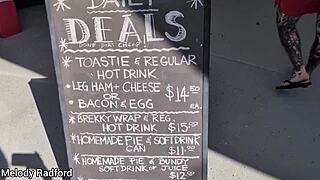 DAILY
DEALS
DONT DIRT CHEAP!
TOASTIE & REGULAR
HOT DRINK
LEG HAM + CHEESE
OR
BACON & EGG
$14.50 EA.
BREKKY WRAP & REG.
HOT DRINK $15.50
HOMEMADE PIE & SOFT DRINK
CAN $11.00
HOMEMADE PIE & BUNDY
SOFT DRINK OR JUICE
$12.
Melody Radford